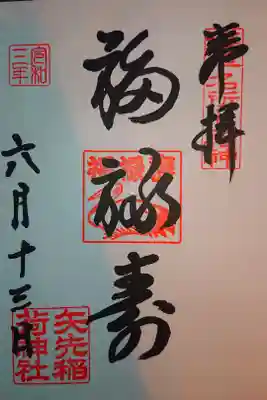 奉拝
福禄寿
令和三年
六月十三日
矢先稲荷神社